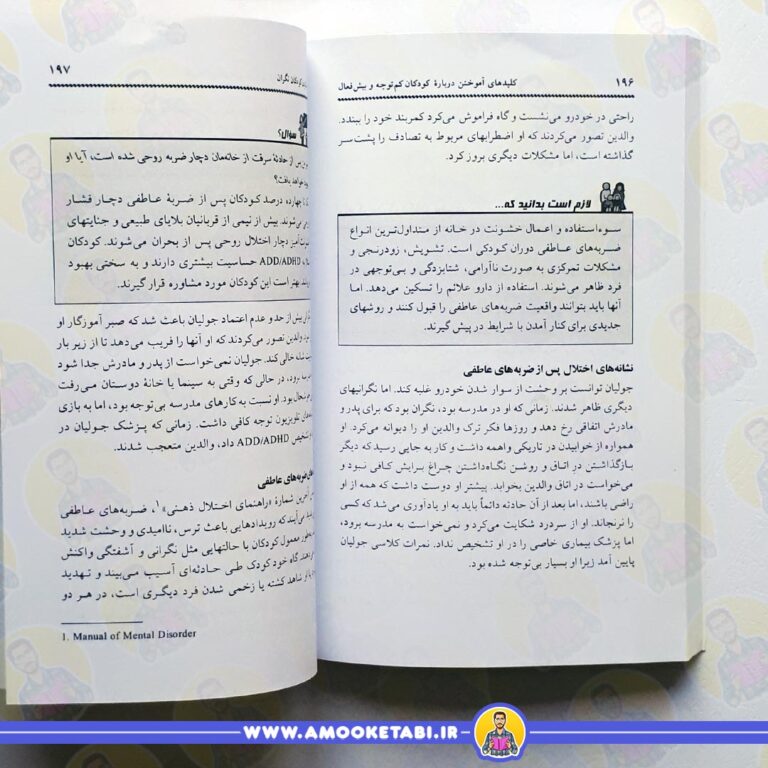 ۱۹۶
کلیدهای آموختن دربارهٔ کودکان کم‌توجه و بیش‌فعال
راحتی در خودرو می‌نشست و گاه فراموش می‌کرد کمربند خود را ببندد.
والدین تصور می‌کردند که او اضطرابهای مربوط به تصادف را پشت‌سر
گذاشته است، اما مشکلات دیگری بروز کرد.
لازم است بدانید که...
سوءاستفاده و اعمال خشونت در خانه از متداول‌ترین انواع
ضربه‌های عاطفی دوران کودکی است. تشویش، زودرنجی و
مشکلات تمرکزی به صورت ناآرامی، شتابزدگی و بی‌توجهی در
فرد ظاهر می‌شوند. استفاده از دارو علائم را تسکین می‌دهد. اما
آنها باید بتوانند واقعیت ضربه‌های عاطفی را قبول کنند و روشهای
جدیدی برای کنار آمدن با شرایط در پیش گیرند.
نشانه‌های اختلال پس از ضربه‌های عاطفی
جولیان توانست بر وحشت از سوار شدن خودرو غلبه کند. اما نگرانیهای
دیگری ظاهر شدند. زمانی که او در مدرسه بود، نگران بود که برای پدر و
مادرش اتفاقی رخ دهد و روزها فکر ترک والدین او را دیوانه می‌کرد. او
همواره از خوابیدن در تاریکی واهمه داشت و کار به جایی رسید که دیگر
بازگذاشتن در اتاق و روشن نگاه‌داشتن چراغ برایش کافی نبود و
می‌خواست در اتاق والدین بخوابد. پیشتر او دوست داشت که همه از او
راضی باشند، اما بعد از آن حادثه دائماً باید به او یادآوری می‌شد که کسی
را نرنجاند. او از سردرد شکایت می‌کرد و نمی‌خواست به مدرسه برود،
اما پزشک بیماری خاصی را در او تشخیص نداد. نمرات کلاسی جولیان
پایین آمد زیرا او بسیار بی‌توجه شده بود.
کودکان نگران
۱۹۷
سؤال؟
پس از حادثهٔ سرقت از خانه‌مان دچار ضربه روحی شده است، آیا او
خواهد یافت؟
چهارده درصد کودکان پس از ضربهٔ عاطفی دچار فشار
می‌شوند. بیش از نیمی از قربانیان بلایای طبیعی و جنایتهای
آمیز دچار اختلال روحی پس از بحران می‌شوند. کودکان
ADD/ADHD حساسیت بیشتری دارند و به سختی بهبود
بهتر است این کودکان مورد مشاوره قرار گیرند.
بیش از حدو عدم اعتماد جولیان باعث شد که صبر آموزگار او
والدین تصور می‌کردند که او آنها را فریب می‌دهد تا از زیر بار
شانه خالی کند. جولیان نمی‌خواست از پدر و مادرش جدا شود
برود، در حالی که وقتی به سینما یا خانهٔ دوستان می‌رفت
بود. او نسبت به کارهای مدرسه بی‌توجه بود، اما به بازی
تلویزیون توجه کافی داشت. زمانی که پزشک جولیان در
تشخیص ADD/ADHD داد، والدین متعجب شدند.
ضربه‌های عاطفی
آخرین شمارهٔ «راهنمای اختلال ذهنی»۱، ضربه‌های عاطفی
می‌آیند که رویدادهایی باعث ترس، ناامیدی و وحشت شدید
معمول کودکان با حالتهایی مثل نگرانی و آشفتگی واکنش
گاه خود کودک طی حادثه‌ای آسیب می‌بیند و تهدید
شاهد کشته یا زخمی شدن فرد دیگری است، در هر دو
1. Manual of Mental Disorder
WWW.AMOOKETABI.IR